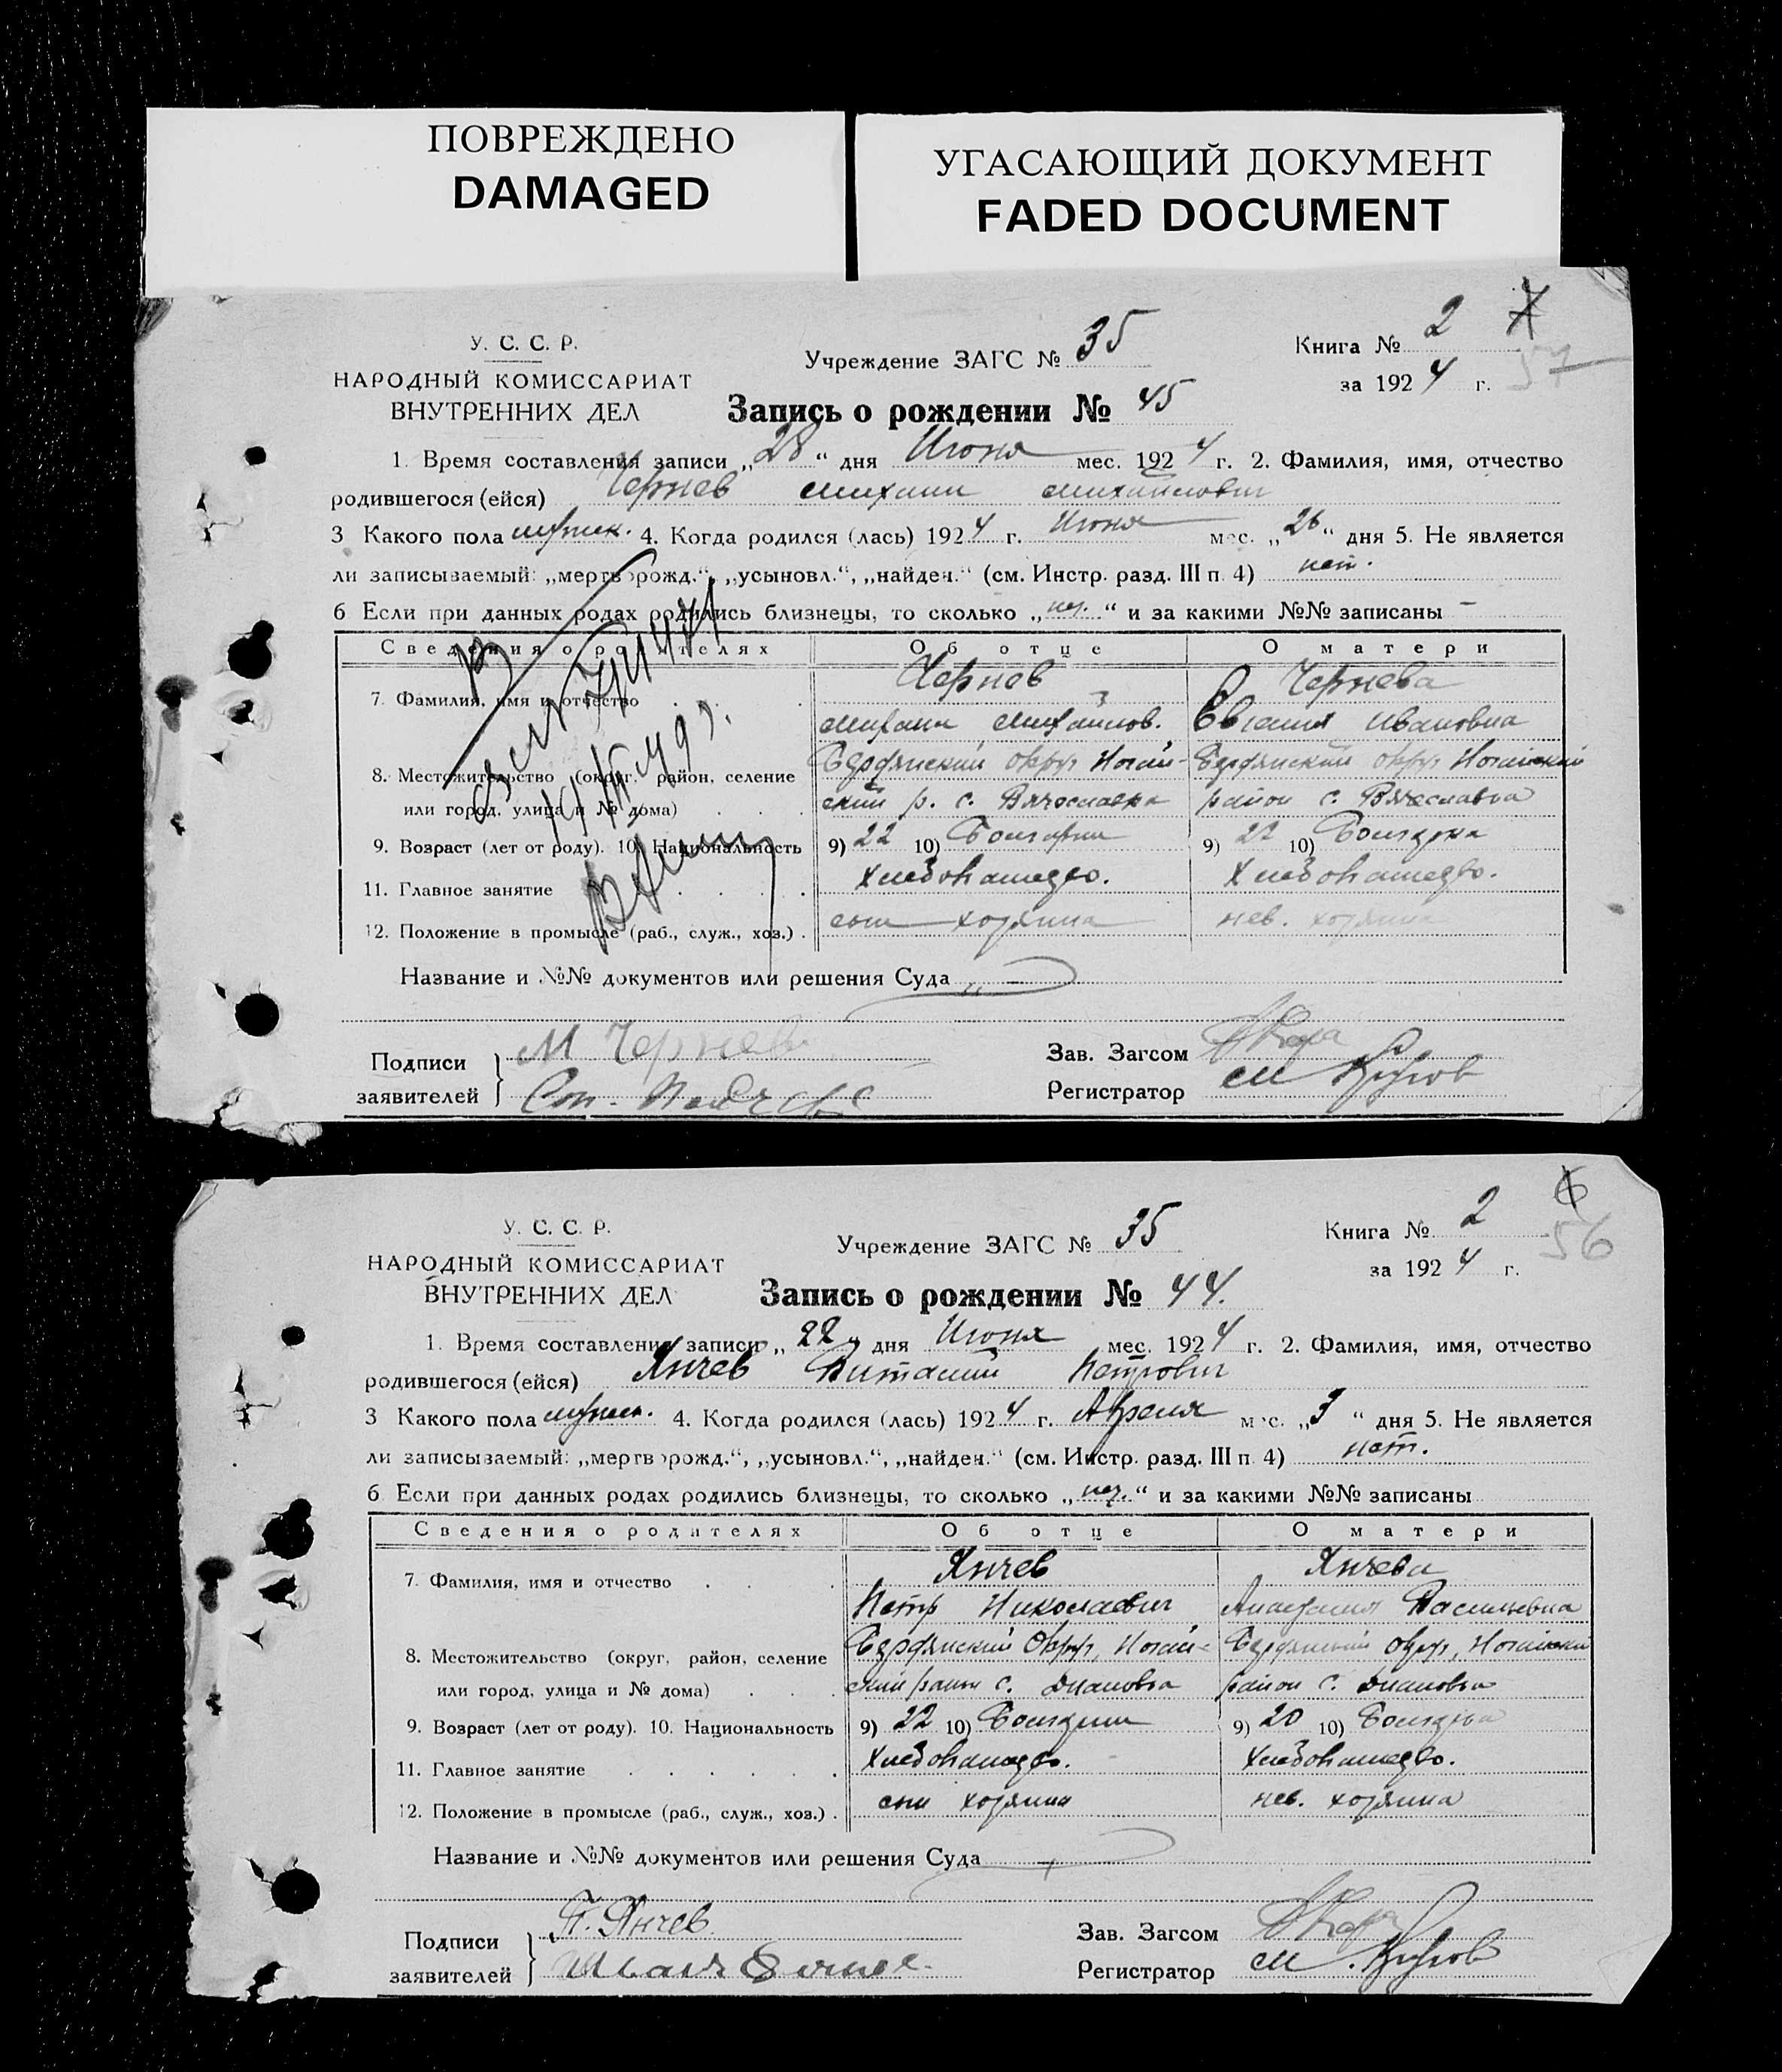 ПОВРЕЖДЕНО
DAMAGED
УГАСАЮЩИЙ ДОКУМЕНТ
FADED DOCUMENT
У. С. С. Р.
НАРОДНЫЙ КОМИССАРИАТ
ВНУТРЕННИХ ДЕЛ
Учреждение ЗАГС № 35
Книга № 2
57
за 1924 г.
Запись о рождении № 45
1. Время составления записи „28“ дня Июня мес. 1924 г. 2. Фамилия, имя, отчество
родившегося (ейся) Чернев Михаил Михайлович
3 Какого пола мужск. 4. Когда родился (лась) 1924 г. Июня мес. „26“ дня 5. Не является
ли записываемый: „мертворожд.“, „усыновл.“, „найден.“ (см. Инстр. разд. III п. 4) нет.
6 Если при данных родах родились близнецы, то сколько „ “ и за какими №№ записаны –
Сведения о родителях Об отце О матери
7. Фамилия, имя и отчество Чернев Чернева
Михаил Михайлов. Евгения Ивановна
8. Местожительство (округ, район, селение Бердянский округ Ногай- Бердянский округ Ногайский
или город, улица и № дома) ский р. с. Вячеславка район с. Вячеславка
9. Возраст (лет от роду). 10. Национальность 9) 22 10) Болгарин 9) 22 10) Болгарка
11. Главное занятие Хлебопашество. Хлебопашество.
12. Положение в промысле (раб., служ., хоз.) . сын хозяина нев. хозяина
Название и №№ документов или решения Суда „ –
Подписи
заявителей
М Чернев
Зав. Загсом
Регистратор
У. С. С. Р.
НАРОДНЫЙ КОМИССАРИАТ
ВНУТРЕННИХ ДЕЛ
Учреждение ЗАГС № 35
Книга № 2
6
56
за 1924 г.
Запись о рождении № 44.
1. Время составления записи „22“ дня Июня мес. 1924 г. 2. Фамилия, имя, отчество
родившегося (ейся) Янчев Виталий Петрович
3 Какого пола мужск. 4. Когда родился (лась) 1924 г. Апреля мес. „3“ дня 5. Не является
ли записываемый: „мертворожд.“, „усыновл.“, „найден.“ (см. Инстр. разд. III п. 4) нет.
6 Если при данных родах родились близнецы, то сколько „ “ и за какими №№ записаны
Сведения о родителях Об отце О матери
7. Фамилия, имя и отчество Янчев Янчева
Петр Николаевич Анастасия Васильевна
8. Местожительство (округ, район, селение Бердянский Округ, Ногай- Бердянский округ, Ногайский
или город, улица и № дома) ский район с. Диановка район с. Диановка
9. Возраст (лет от роду). 10. Национальность 9) 22 10) Болгарин 9) 20 10) Болгарка
11. Главное занятие Хлебопашество. Хлебопашество.
12. Положение в промысле (раб., служ., хоз.) . сын хозяина нев. хозяина
Название и №№ документов или решения Суда
Подписи
заявителей
П. Янчев
Зав. Загсом
Регистратор